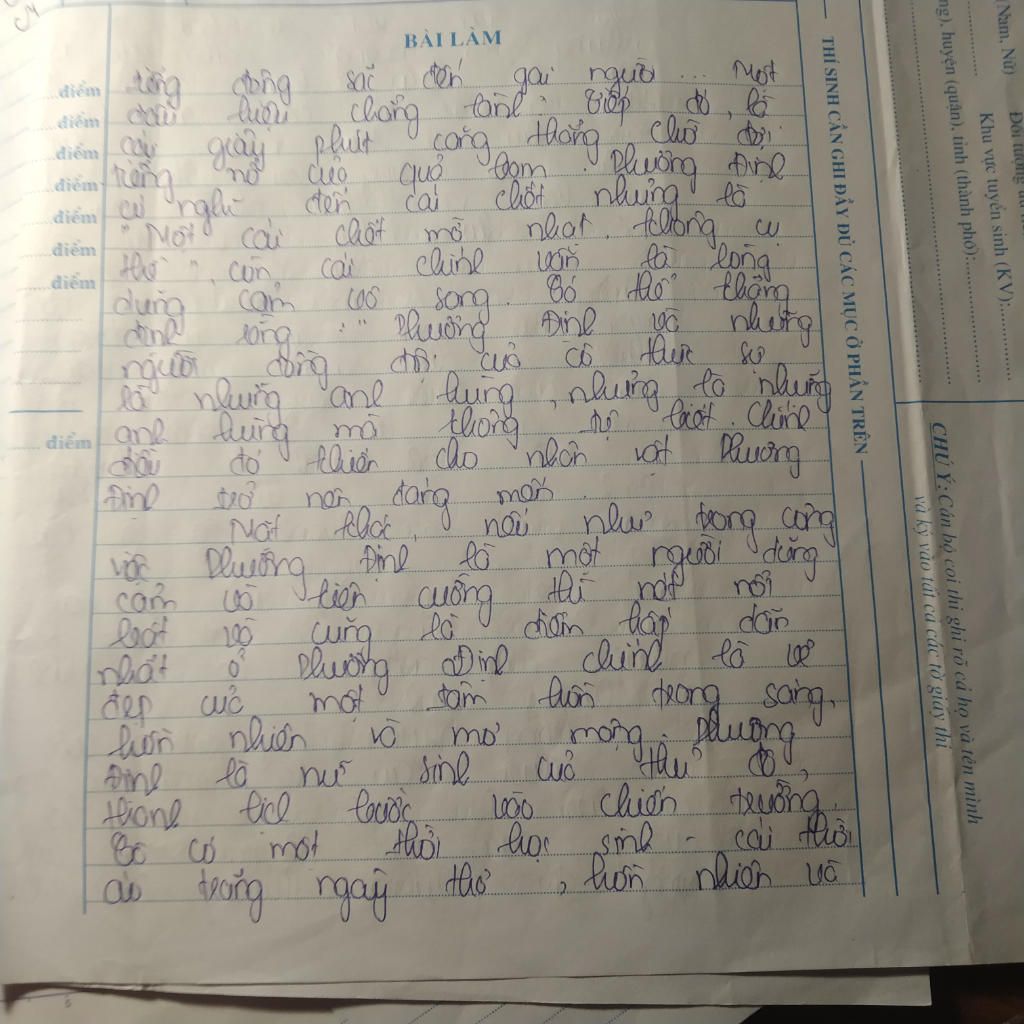 BÀI LÀM
tiếng động sắc đến gai người ... Một
dấu hiệu chẳng lành. Tiếp đó, là
cái giây phút căng thẳng chờ đợi
tiếng nổ của quả bom. Phương Định
có nghĩ đến cái chết nhưng là
"Một cái chết mờ nhạt, không cụ
thể", còn cái chính vẫn là lòng
dũng cảm vô song. Có thể khẳng
định rằng: " Phương Định và những
người đồng đội của cô thực sự
là những anh hùng, nhưng là những
anh hùng mà không tự biết. Chính
điều đó khiến cho nhân vật Phương
Định trở nên đáng mến.
Mặt khác, nếu như trong công
việc Phương Định là một người dũng
cảm và kiên cường thì nét nổi
bật và cũng là điểm hấp dẫn
nhất ở Phương Định chính là vẻ
đẹp của một tâm hồn trong sáng,
hồn nhiên và mơ mộng. Phương
Định là nữ sinh của thủ đô,
thanh lịch bước vào chiến trường.
Cô có một thời học sinh - cái thời
áo trắng ngây thơ, hồn nhiên và
điểm
điểm
điểm
điểm
điểm
điểm
điểm
điểm
THÍ SINH CẦN GHI ĐẦY ĐỦ CÁC MỤC Ở PHẦN TRÊN
(Nam, Nữ)
Khu vực tuyển sinh (KV):
huyện (quận), tỉnh (thành phố):
CHÚ Ý: Cán bộ coi thi ghi rõ cả họ và tên mình
và ký vào tất cả các tờ giấy thi